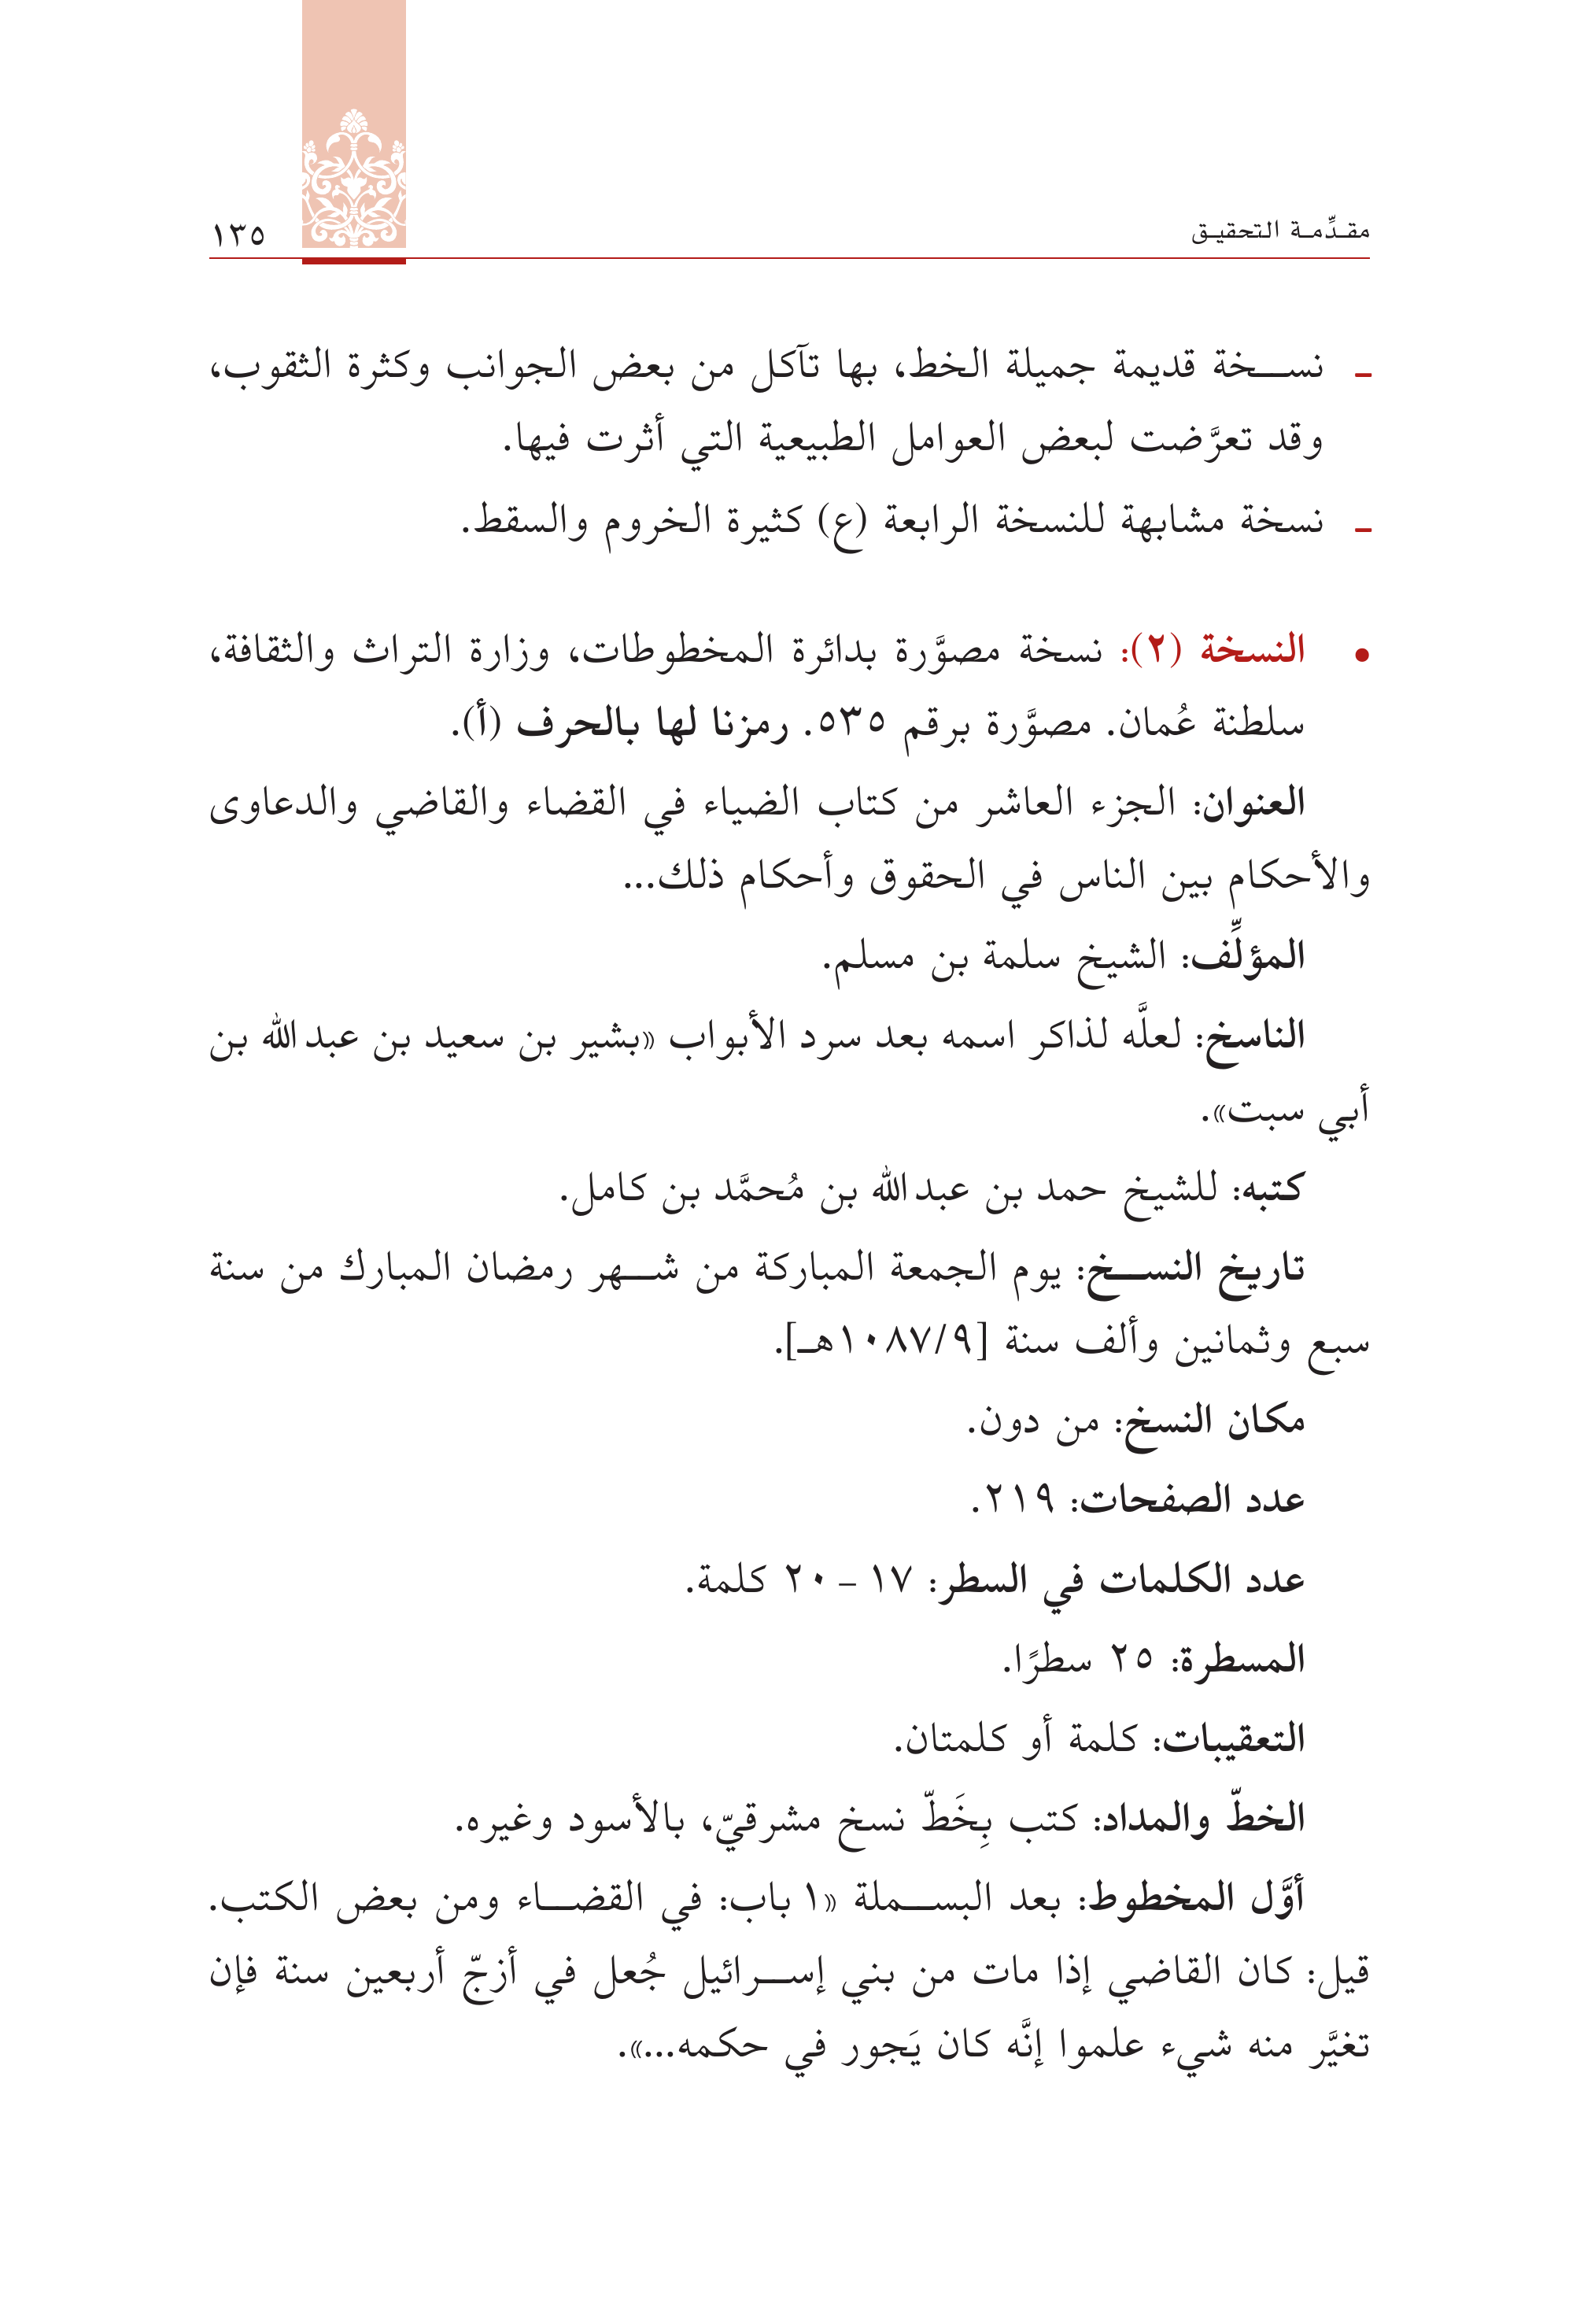 مقدِّمة التحقيق
١٣٥
ـ نسخة قديمة جميلة الخط، بها تآكل من بعض الجوانب وكثرة الثقوب،
وقد تعرَّضت لبعض العوامل الطبيعية التي أثرت فيها.
ـ نسخة مشابهة للنسخة الرابعة (ع) كثيرة الخروم والسقط.
• النسخة (٢): نسخة مصوَّرة بدائرة المخطوطات، وزارة التراث والثقافة،
سلطنة عُمان. مصوَّرة برقم ٥٣٥. رمزنا لها بالحرف (أ).
العنوان: الجزء العاشر من كتاب الضياء في القضاء والقاضي والدعاوى
والأحكام بين الناس في الحقوق وأحكام ذلك...
المؤلِّف: الشيخ سلمة بن مسلم.
الناسخ: لعلَّه لذاكر اسمه بعد سرد الأبواب «بشير بن سعيد بن عبد الله بن
أبي سبت».
كتبه: للشيخ حمد بن عبد الله بن مُحمَّد بن كامل.
تاريخ النسخ: يوم الجمعة المباركة من شهر رمضان المبارك من سنة
سبع وثمانين وألف سنة [١٠٨٧/٩هـ].
مكان النسخ: من دون.
عدد الصفحات: ٢١٩.
عدد الكلمات في السطر: ١٧ - ٢٠ كلمة.
المسطرة: ٢٥ سطرًا.
التعقيبات: كلمة أو كلمتان.
الخطّ والمداد: كتب بِخَطّ نسخ مشرقيّ، بالأسود وغيره.
أوَّل المخطوط: بعد البسملة «١ باب: في القضاء ومن بعض الكتب.
قيل: كان القاضي إذا مات من بني إسرائيل جُعل في أزجّ أربعين سنة فإن
تغيَّر منه شيء علموا إنَّه كان يَجور في حكمه...».